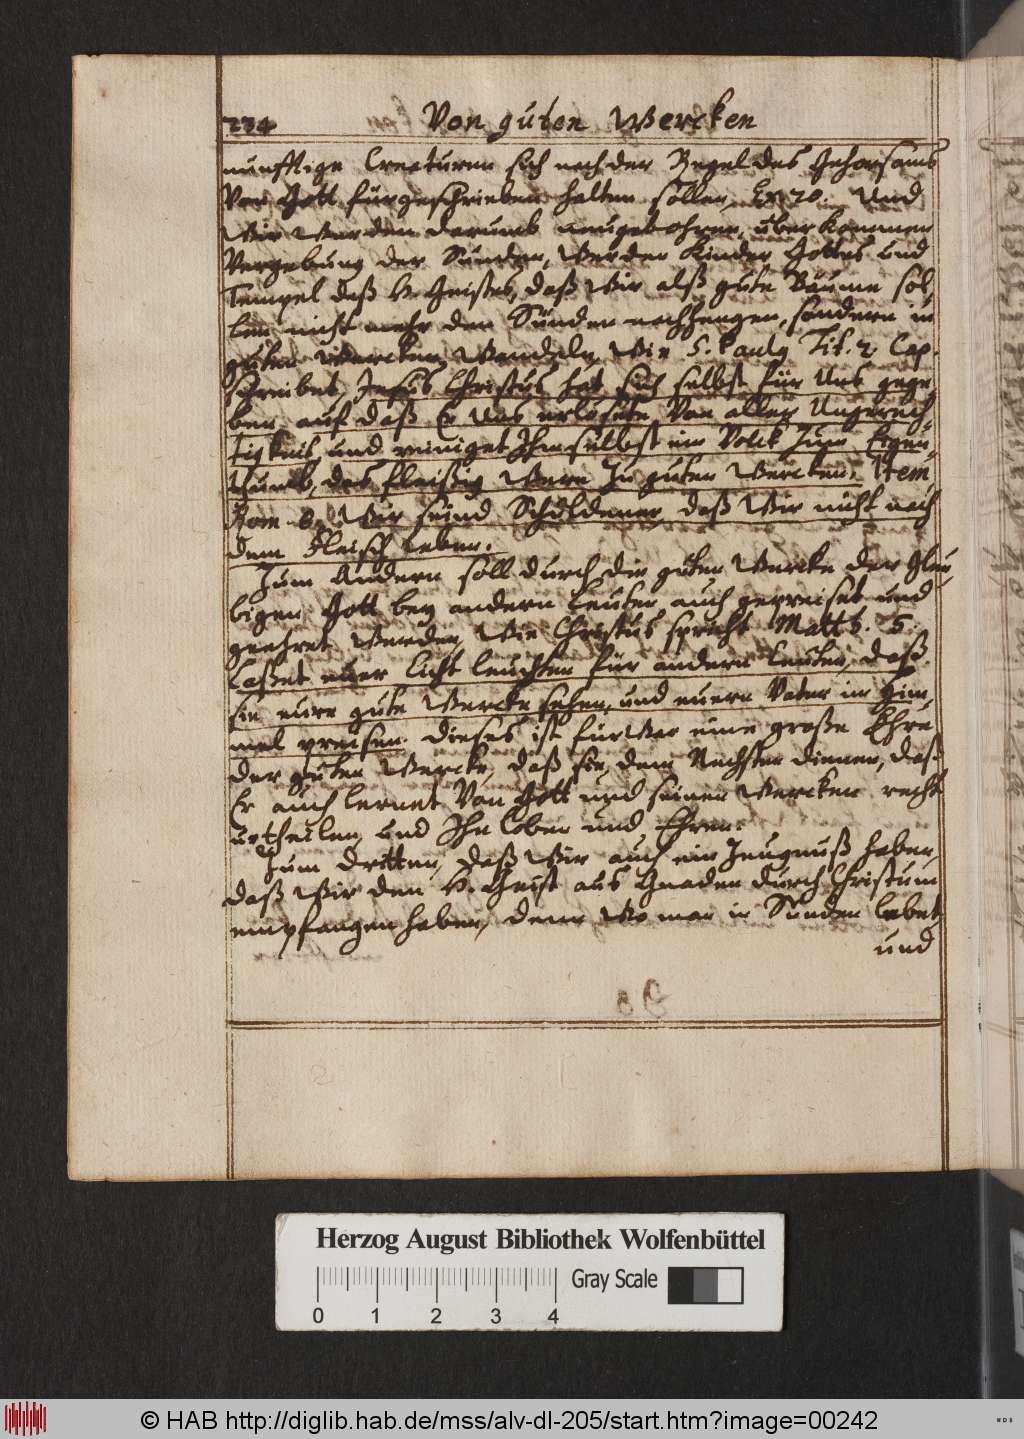 234
Von guten Wercken
nunfftige Creaturen sich nach der Regel des Gehorsams
Von Gott fürgeschrieben halten sollen, Ex 20. Und
Wir Werden darumb neugebohren, überkommen
Vergebung der Sünden, Werden Kinder Gottes und
Tempel deß H. Geistes, daß Wir alß gute Bäume sol
len nicht mehr den Sünden nachhengen, sondern in
guten Wercken Wandeln, Wie S. Paulq Tit. 2 Cap.
schreibet, Jesus Christus hat sich selbst für Uns gege
ben auf daß Er Uns erlösete Von aller Ungerech
tigkeit und reiniget Ihm selbst ein Volck Zum Eigen
thumb, das fleißig Were Zu guten Wercken. Item
Rom 8. Wir seind Schuldener, daß Wir nicht nach
dem Fleisch leben.
Zum Andern soll durch die guten Wercke der Gleu
bigen Gott bey andern Leuten auch gepreiset und
geehret Werden, Wie Christus spricht Matth. 5.
Laßet euer Licht leuchten für andern Leuten, daß
sie eure gute Wercke sehen, und euern Vater im Him
mel preisen. Dieses ist fürWar eine große Ehre
der guten Wercke, daß sie dem Nechsten dienen, das
Er auch lernet Von Gott und seinen Wercken recht
urtheilen, und Ihn loben und Ehren.
Zum dritten, daß Wir auch ein Zeugnuß haben,
daß Wir den H. Geist aus Gnaden durch Christum
empfangen haben, denn Wo man in Sünden lebet
und
Herzog August Bibliothek Wolfenbüttel
Gray Scale
0 1 2 3 4
© HAB http://diglib.hab.de/mss/alv-dl-205/start.htm?image=00242